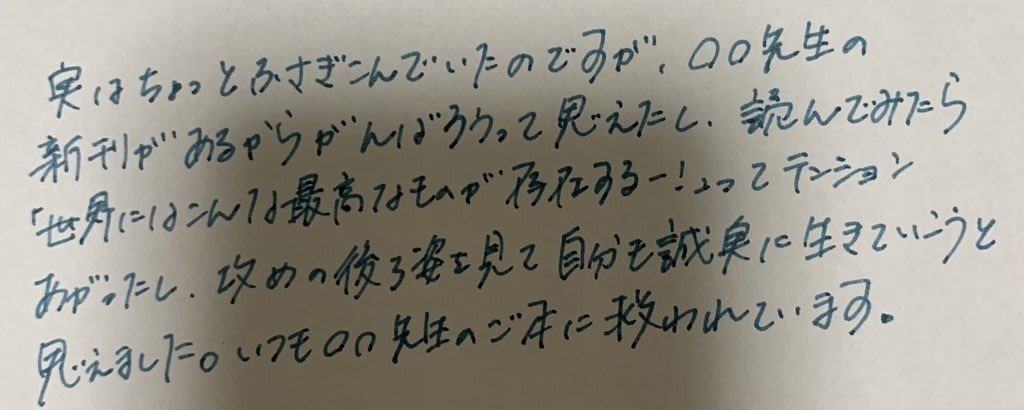 実はちょっとふさぎこんでいたのですが、○○先生の
新刊があるからがんばろうって思えたし、読んでみたら
「世界にはこんな最高なものが存在するー!」ってテンション
あがったし、攻めの後ろ姿を見て自分も誠実に生きていこうと
思えました。いつも○○先生のご本に救われています。